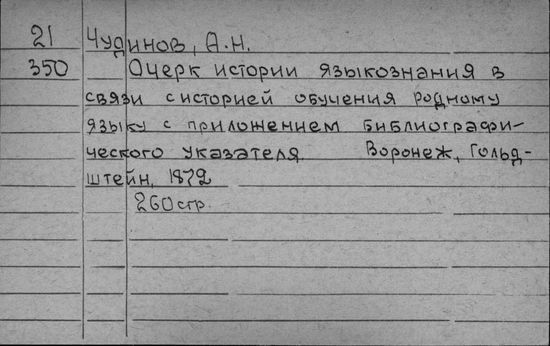 21 Чудинов, А.Н.
350 Очерк истории языкознания в
связи с историей обучения родному
языку с приложением библиографи-
ческого указателя. Воронеж, Гольд-
штейн, 1872
260 стр.